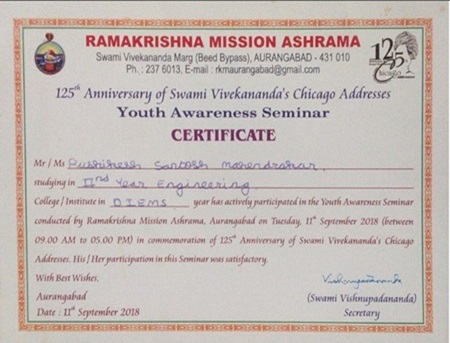 RAMAKRISHNA MISSION ASHRAMA
Swami Vivekananda Marg (Beed Bypass), AURANGABAD - 431 010
Ph. : 237 6013, E-mail : rkmaurangabad@gmail.com
125
125th Anniversary of Swami Vivekananda's Chicago Addresses
Youth Awareness Seminar
CERTIFICATE
Mr / Ms Santosh
studying in IInd Year Engineering
College / Institute in DIEMS year has actively participated in the Youth Awareness Seminar
conducted by Ramakrishna Mission Ashrama, Aurangabad on Tuesday, 11th September 2018 (between
09.00 AM to 05.00 PM) in commemoration of 125th Anniversary of Swami Vivekananda's Chicago
Addresses. His / Her participation in this Seminar was satisfactory.
With Best Wishes,
Vishnupadananda
Aurangabad
(Swami Vishnupadananda)
Date : 11th September 2018
Secretary